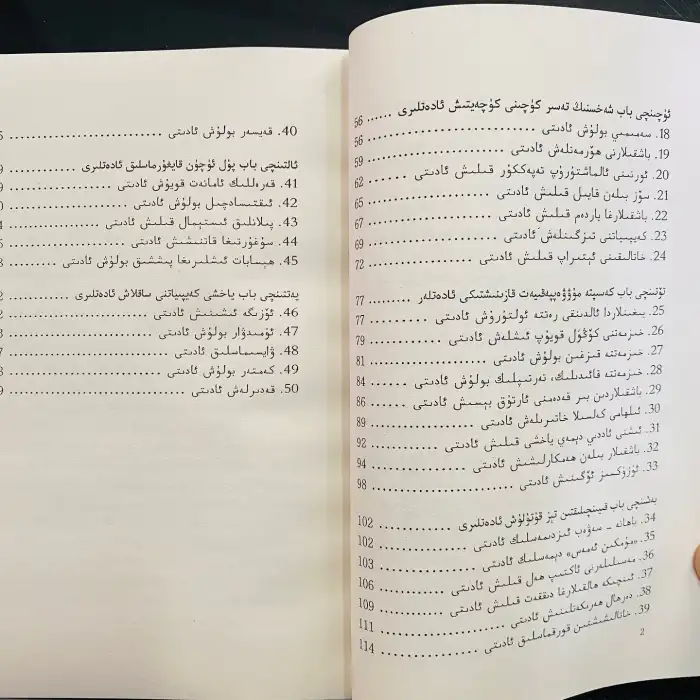 ئۈچىنچى باب شەخسنىڭ تەسىر كۈچىنى كۈچەيتىش ئادەتلىرى ...... 56
18. سەمىمىي بولۇش ئادىتى ................................ 56
19. باشقىلارنى ھۆرمەتلەش ئادىتى ........................ 59
20. ئورنىنى ئالماشتۇرۇپ تەپەككۇر قىلىش ئادىتى ........ 62
21. سۆز بىلەن قايىل قىلىش ئادىتى ...................... 65
22. باشقىلارغا ياردەم قىلىش ئادىتى ..................... 67
23. كەيپىياتنى تىزگىنلەش ئادىتى ........................ 69
24. خاتالىقنى ئېتىراپ قىلىش ئادىتى .................... 72
تۆتىنچى باب كەسىپتە مۇۋەپپەقىيەت قازىنىشتىكى ئادەتلەر ...... 77
25. يىغىنلاردا ئالدىنقى رەتتە ئولتۇرۇش ئادىتى ........ 77
26. خىزمەتنى كۆڭۈل قويۇپ ئىشلەش ئادىتى ............ 79
27. خىزمەتتە قىزغىن بولۇش ئادىتى ..................... 81
28. خىزمەتتە قائىدىلىك، تەرتىپلىك بولۇش ئادىتى ...... 84
29. باشقىلاردىن بىر قەدەمنى ئارتۇق بېسىش ئادىتى ...... 86
30. ئىلھامى كەلسىلا خاتىرىلەش ئادىتى ................. 89
31. ئىشنى ئاددىي دېمەي ياخشى قىلىش ئادىتى .......... 92
32. باشقىلار بىلەن ھەمكارلىشىش ئادىتى ............... 94
33. ئۈزۈكسىز ئۆگىنىش ئادىتى ........................... 98
بەشىنچى باب قىيىنچىلىقتىن تېز قۇتۇلۇش ئادەتلىرى ........ 102
34. باھانە - سەۋەب ئىزدىمەسلىك ئادىتى ............. 102
35. «مۇمكىن ئەمەس» دېمەسلىك ئادىتى .............. 103
36. مەسىلىلەرنى ئاكتىپ ھەل قىلىش ئادىتى .......... 106
37. ئىنچىكە ھالقىلارغا دىققەت قىلىش ئادىتى ......... 109
38. دەرھال ھەرىكەتلىنىش ئادىتى ...................... 111
39. خاتالىشىشتىن قورقماسلىق ئادىتى ................. 114
2
40. قەيسەر بولۇش ئادىتى ..........................
ئالتىنچى باب پۇل ئۈچۈن قايغۇرماسلىق ئادەتلىرى ............
41. قەرەللىك ئامانەت قويۇش ئادىتى ..................
42. ئىقتىسادچىل بولۇش ئادىتى .......................
43. پىلانلىق ئىستېمال قىلىش ئادىتى ..................
44. سۇغۇرتىغا قاتنىشىش ئادىتى ......................
45. ھېسابات ئىشلىرىغا پىششىق بولۇش ئادىتى .........
يەتتىنچى باب ياخشى كەيپىياتنى ساقلاش ئادەتلىرى ...........
46. ئۆزىگە ئىشىنىش ئادىتى ...........................
47. ئۈمىدۋار بولۇش ئادىتى ...........................
48. ۋايسىماسلىق ئادىتى ..............................
49. كەمتەر بولۇش ئادىتى ............................
50. قەدىرلەش ئادىتى .................................